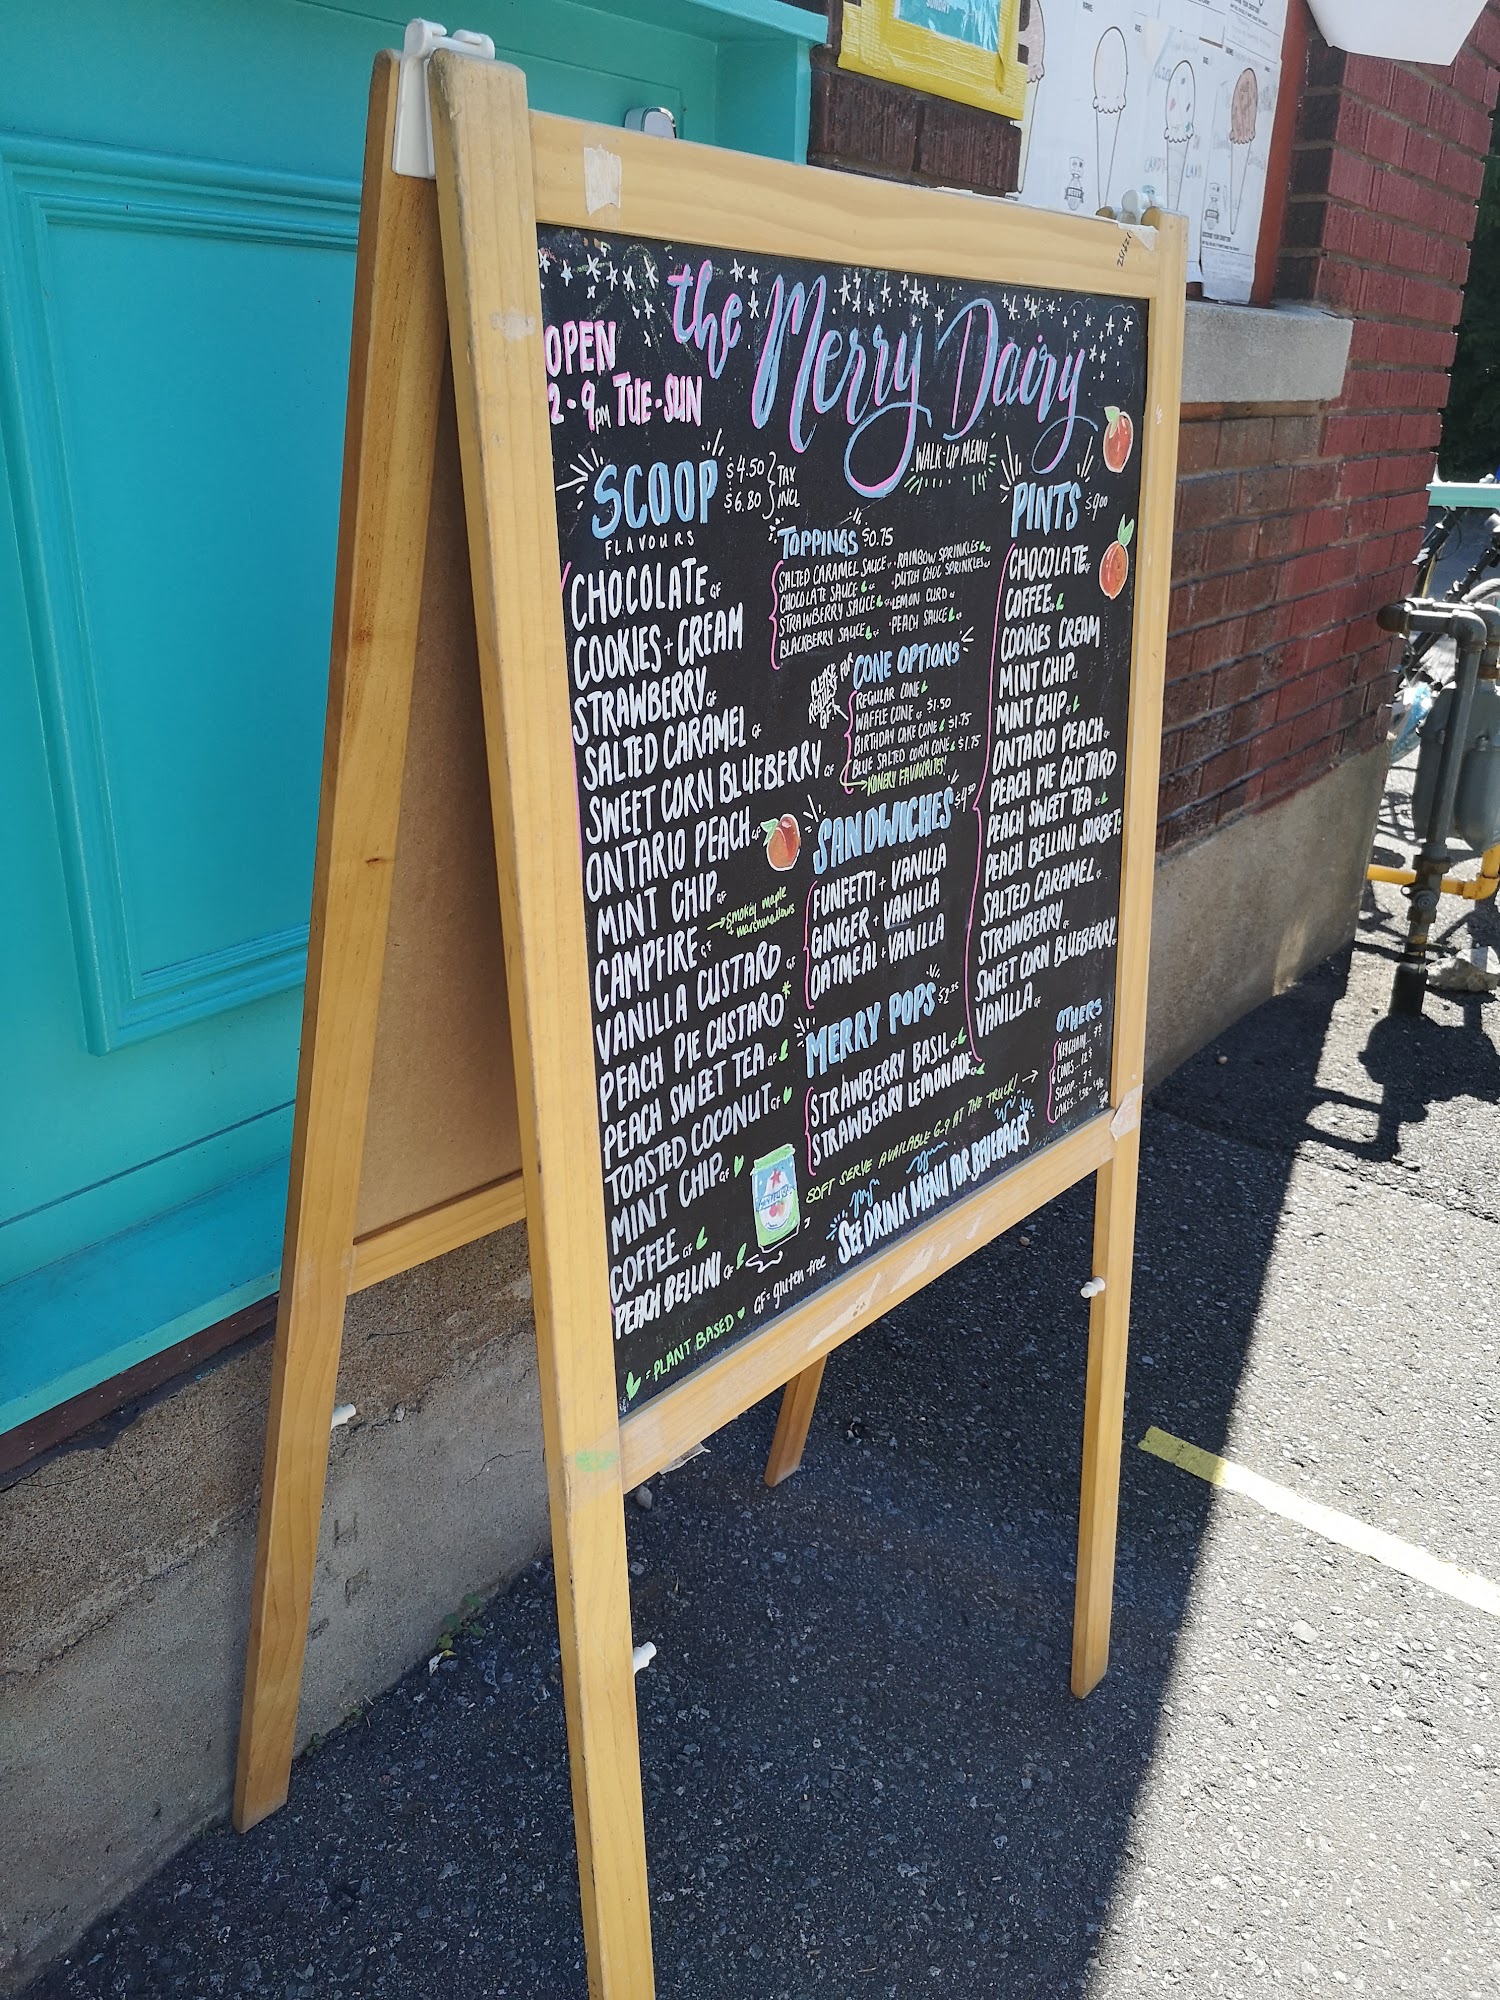 the Merry Dairy
OPEN
2-9PM TUE-SUN
WALK-UP MENU
SCOOP $4.50 } TAX
$6.80 } INCL
FLAVOURS
CHOCOLATE GF
COOKIES + CREAM
STRAWBERRY GF
SALTED CARAMEL GF
SWEET CORN BLUEBERRY GF
ONTARIO PEACH GF
MINT CHIP GF
CAMPFIRE GF → smokey maple
+ marshmallows
VANILLA CUSTARD GF
PEACH PIE CUSTARD*
PEACH SWEET TEA GF
TOASTED COCONUT GF
MINT CHIP GF
COFFEE GF
PEACH BELLINI GF
= PLANT BASED ♥ GF = gluten free
TOPPINGS $0.75
SALTED CARAMEL SAUCE · RAINBOW SPRINKLES
CHOCOLATE SAUCE · DUTCH CHOC SPRINKLES
STRAWBERRY SAUCE · LEMON CURD
BLACKBERRY SAUCE · PEACH SAUCE
CONE OPTIONS
REGULAR CONE
WAFFLE CONE GF $1.50
BIRTHDAY CAKE CONE $1.75
BLUE SALTED CORN CONE $1.75
KONERY FAVOURITES
SANDWICHES $4.50
FUNFETTI + VANILLA
GINGER + VANILLA
OATMEAL + VANILLA
MERRY POPS
STRAWBERRY BASIL GF
STRAWBERRY LEMONADE GF
SOFT SERVE AVAILABLE 6-9 AT THE TRUCK! →
SEE DRINK MENU FOR BEVERAGES
PINTS $9.00
CHOCOLATE GF
COFFEE
COOKIES CREAM
MINT CHIP GF
MINT CHIP GF
ONTARIO PEACH GF
PEACH PIE CUSTARD
PEACH SWEET TEA GF
PEACH BELLINI SORBET
SALTED CARAMEL GF
STRAWBERRY GF
SWEET CORN BLUEBERRY GF
VANILLA GF
OTHERS
SCOOP...7$
SUNDAY